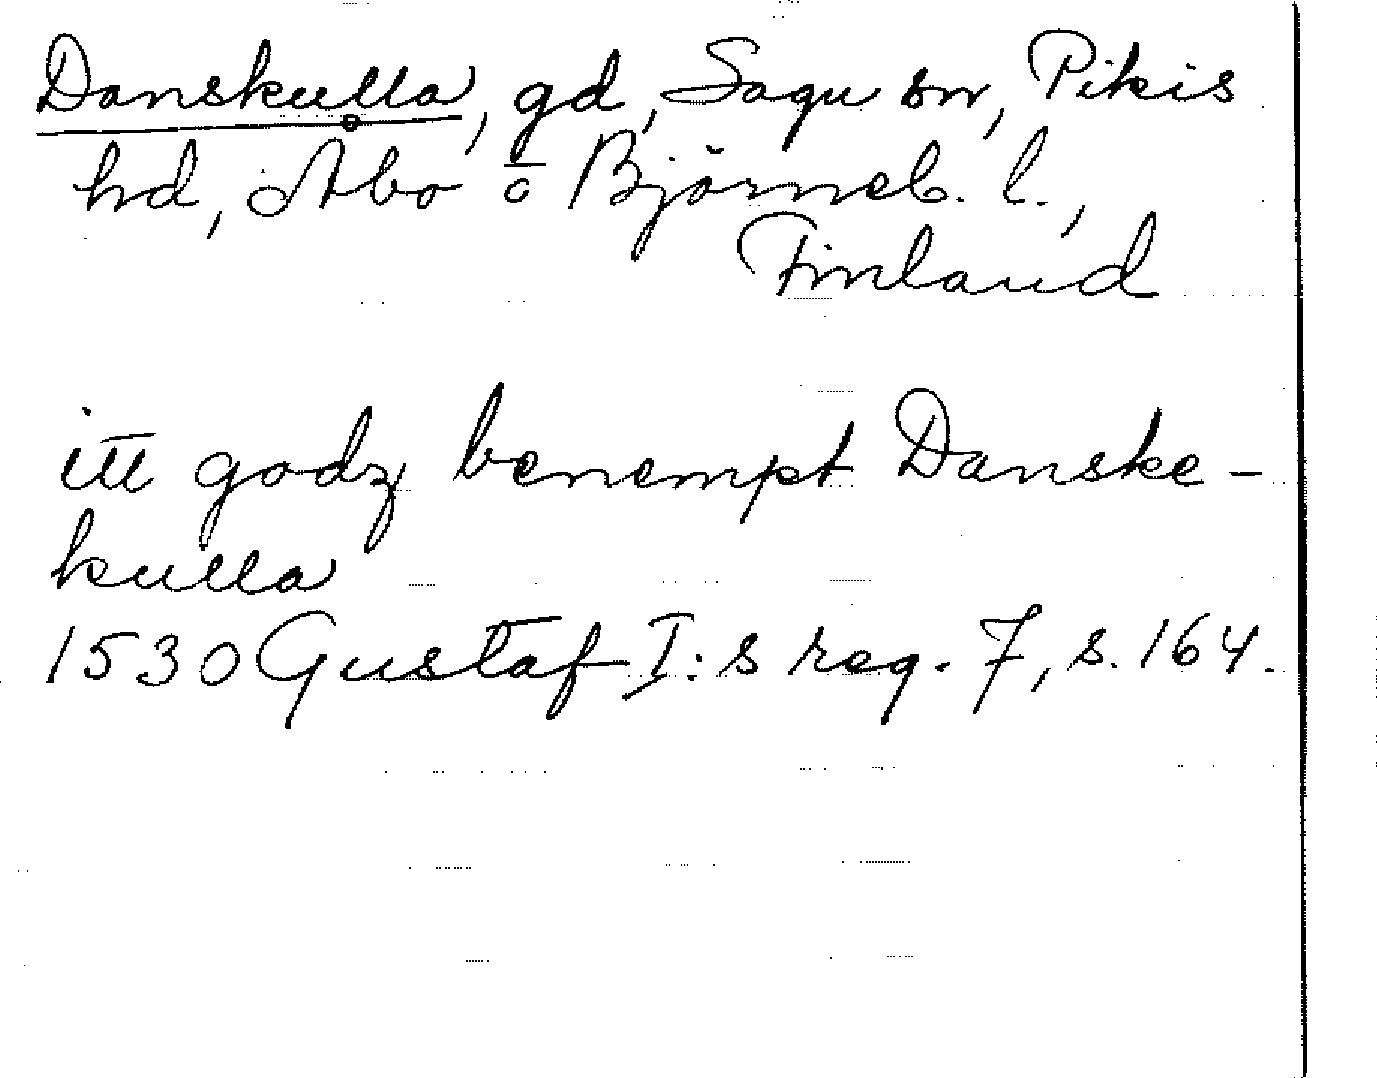 Danskulla, gd, Sagu sn, Pikis
hd, Åbo o Björneb. l.,
Finland
itt godz benempt Danske-
kulla
1530 Gustaf I:s reg. 7, s. 164.